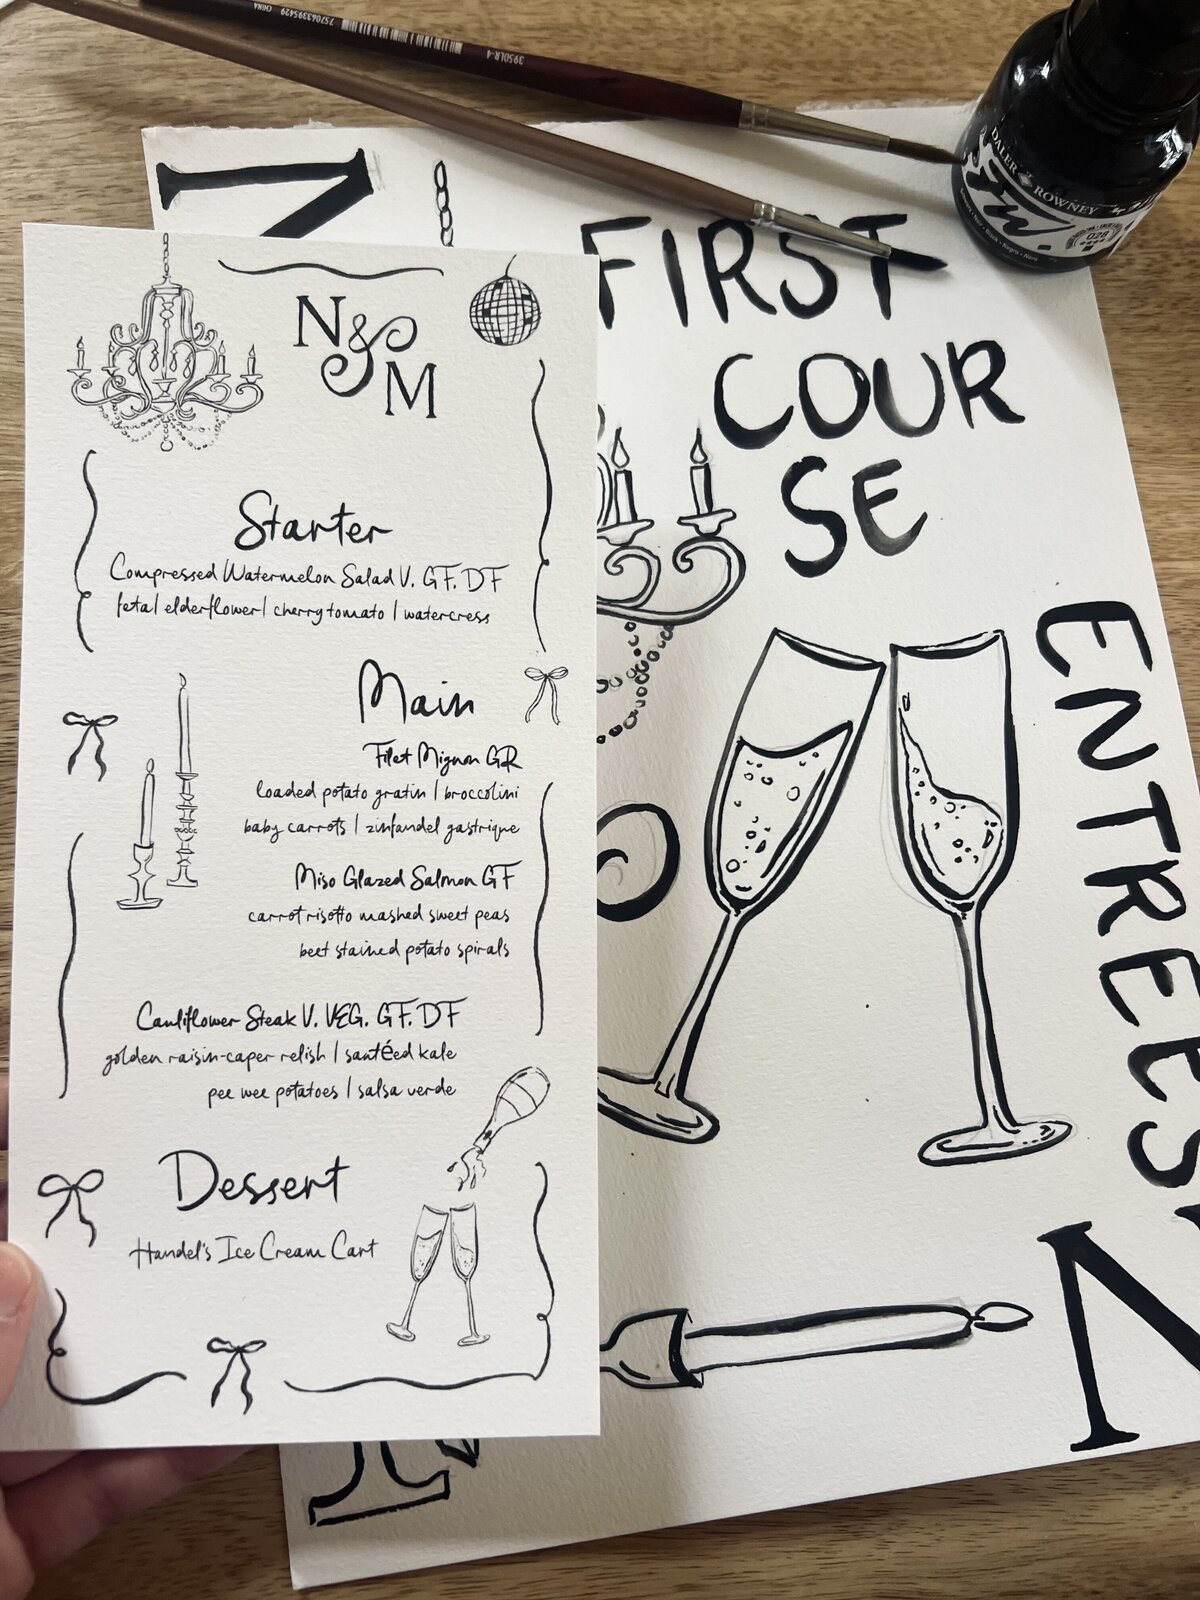 N&M
Starter
Compressed Watermelon Salad V. GF. DF
feta| elderflower| cherry tomato | watercress
Main
Filet Mignon GR
loaded potato gratin | broccolini
baby carrots | zinfandel gastrique
Miso Glazed Salmon GF
carrot risotto mashed sweet peas
beet stained potato spirals
Cauliflower Steak V. VEG. GF. DF
golden raisin-caper relish | santéed kale
pee wee potatoes | salsa verde
Dessert
Handel's Ice Cream Cart
N
FIRST
COUR
SE
ENTREES
N
DALER ROWNEY
028
395DLR-4
757063395429
CHINA